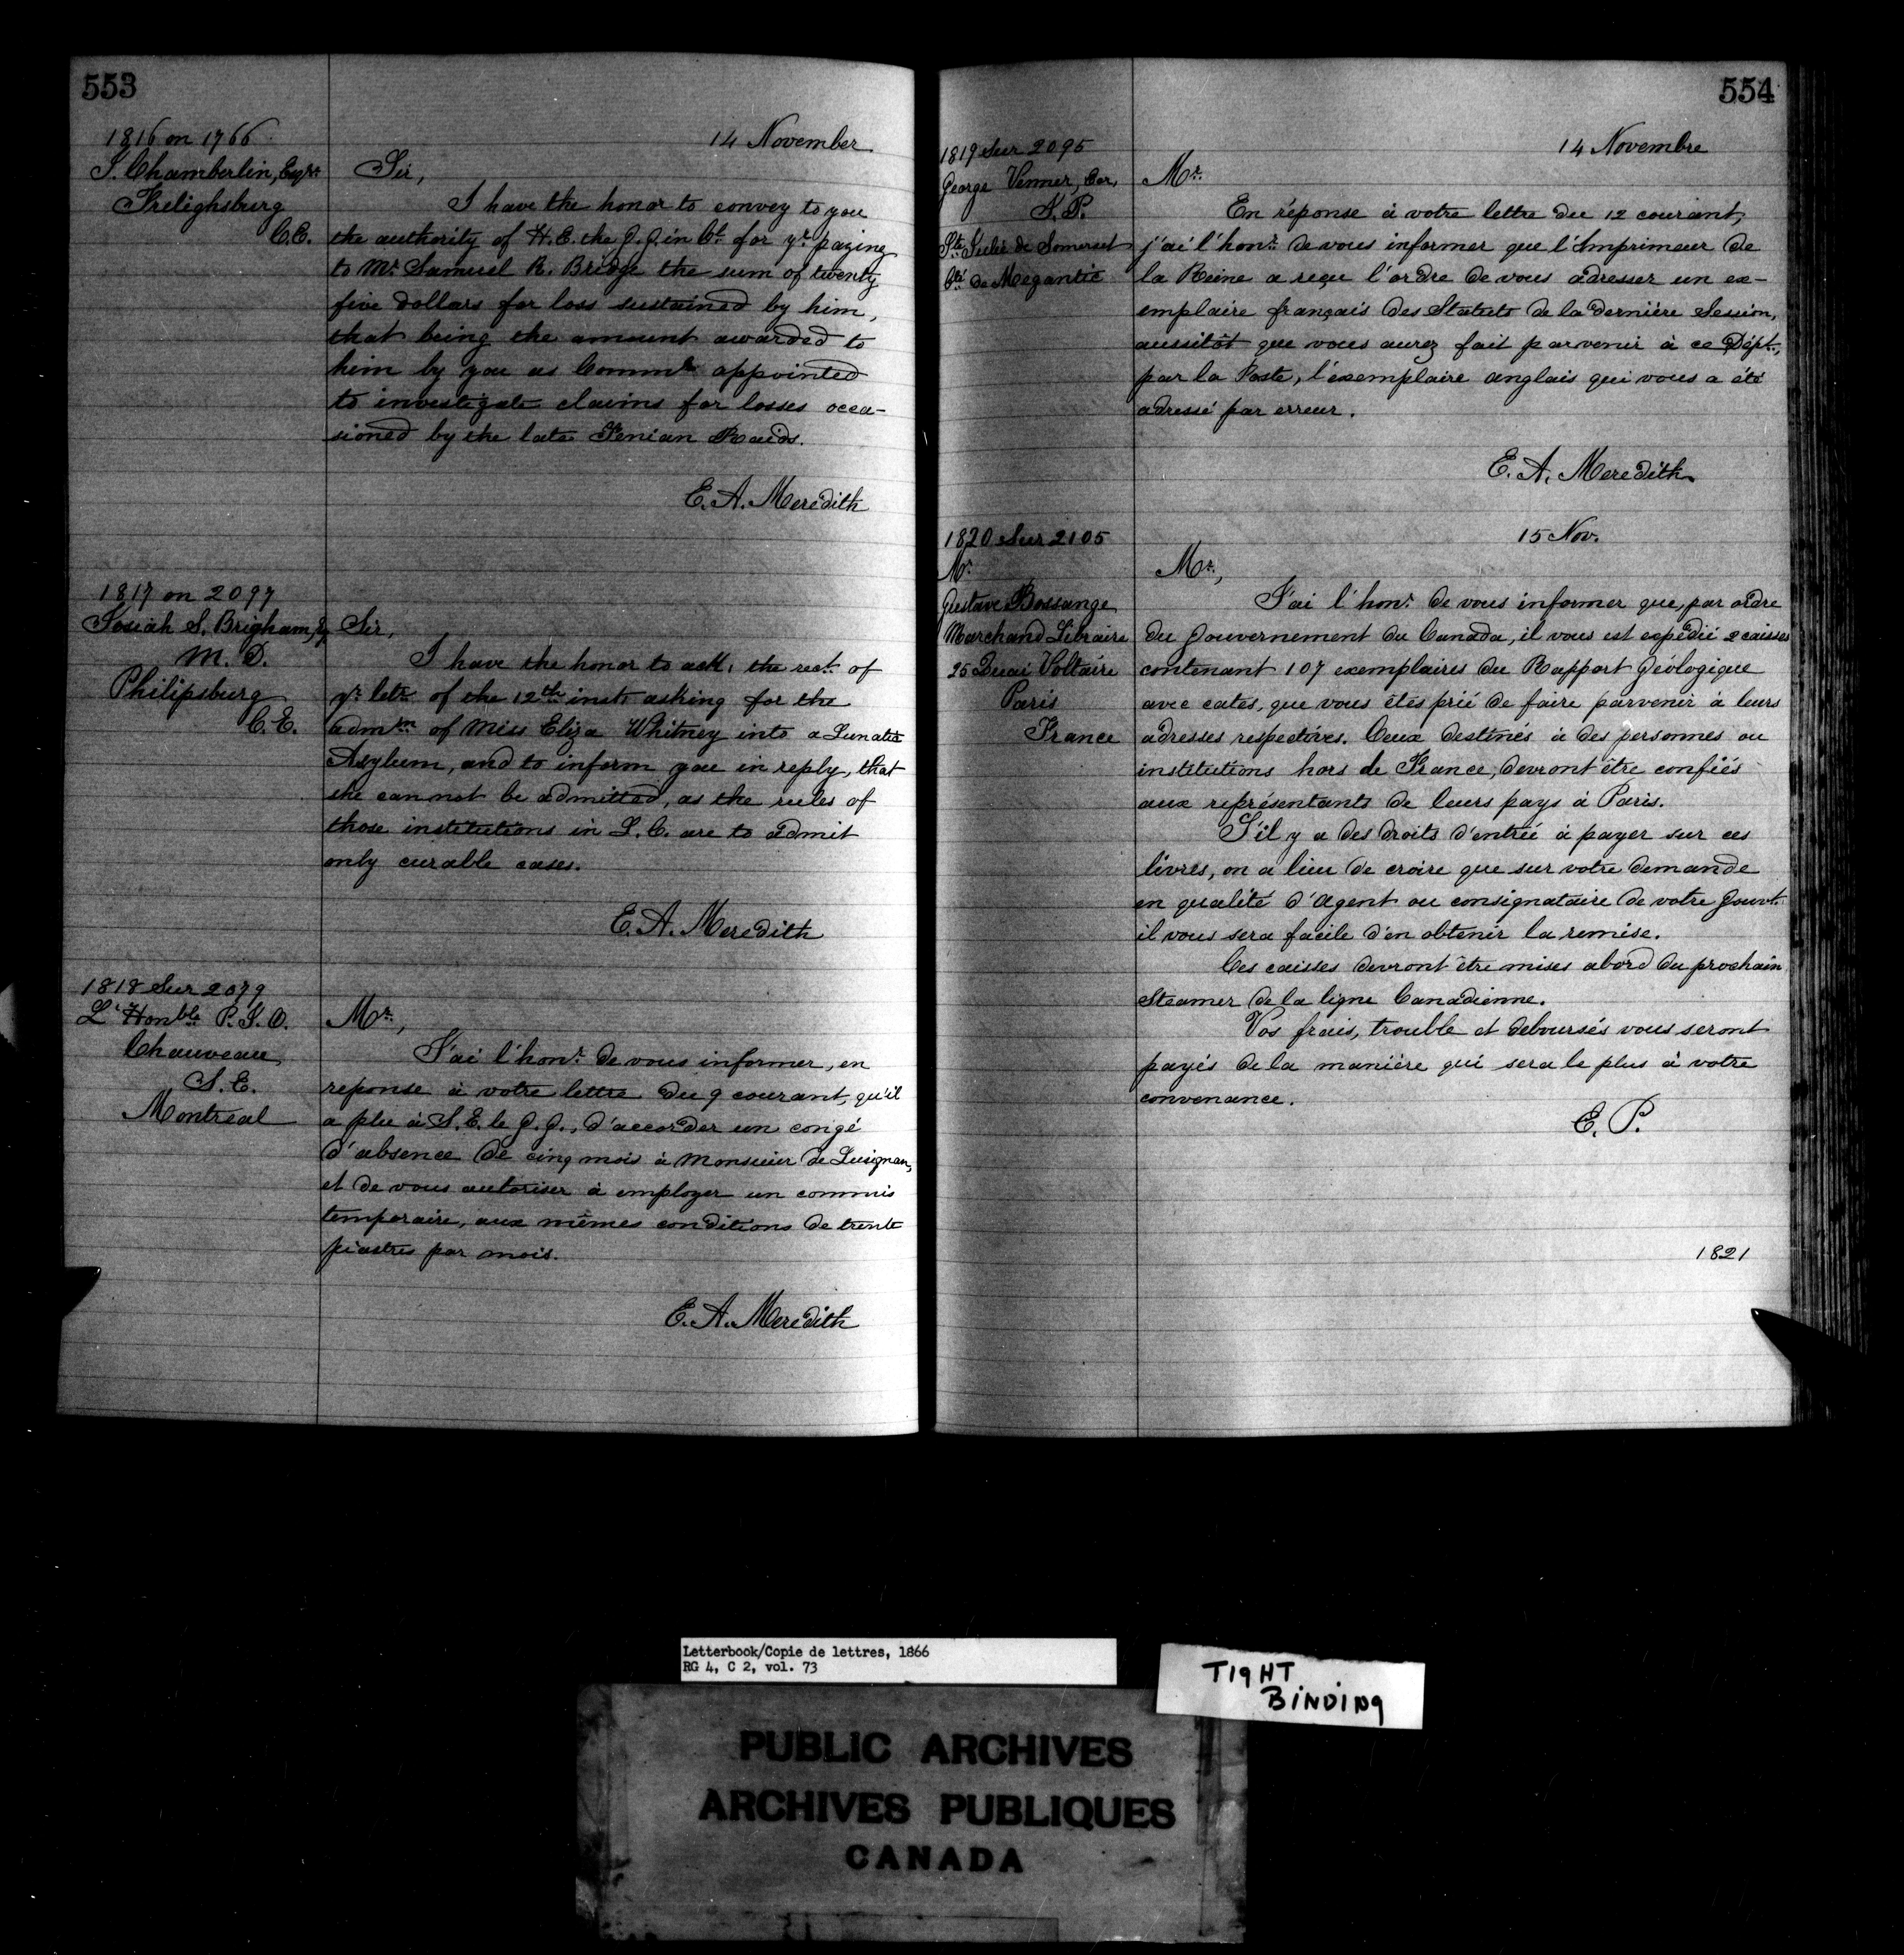 553
1816 on 1766
14 November
S. Chamberlin, Esqre.
Frelighsburg
C.E.
Sir,
I have the honor to convey to you
the authority of H.E. the G.G. in Cl. for yr. paying
to Mr. Samuel R. Bridge the sum of twenty
five dollars for loss sustained by him,
that being the amount awarded to
him by you as Commr. appointed
to investigate claims for losses occa-
sioned by the late Fenian Raids.
E. A. Meredith
1817 on 2097
Josiah S. Brigham, Eq
M. D.
Philipsburg
C.E.
Sir,
I have the honor to ack: the rect. of
yr. letr. of the 12th inst. asking for the
admn. of Miss Eliza Whitney into a Lunatic
Asylum, and to inform you in reply, that
she can not be admitted, as the rules of
those institutions in L.C. are to admit
only curable cases.
E. A. Meredith
1818 Sur 2079
L'Honble. P. J. O.
Chauveau
S. E.
Montreal
Mr.,
J'ai l'honr. de vous informer, en
reponse à votre lettre du 9 courant, qu'il
a plu à S. E. le G. G., d'accorder un congé
d'absence de cinq mois à Monsieur de Lusignan,
et de vous autoriser à employer un commis
temporaire, aux mêmes conditions de trente
piastres par mois.
E. A. Meredith
554
14 Novembre
1819 Sur 2095
George Venner, Cer,
J. P.
Ste. Julie de Somerset
Cté. de Megantic
Mr.
En réponse à votre lettre du 12 courant,
j'ai l'honr. de vous informer que l'Imprimeur de
la Reine a reçu l'ordre de vous adresser un ex-
emplaire français des Statuts de la derniére Session,
aussitôt que vous aurez fait parvenir à ce Dépt.,
par la Poste, l'exemplaire anglais qui vous a été
adressé par erreur.
E. A. Meredith
1820 Sur 2105
15 Nov.
Mr.
Gustave Bossange
Marchand Libraire
25 Quai Voltaire
Paris
France
Mr.,
J'ai l'honr. de vous informer que, par ordre
du Gouvernement du Canada, il vous est expédié 2 caisses
contenant 107 exemplaires du Rapport Géologique
avec cates, que vous êtes prié de faire parvenir à leurs
adresses respectives. Ceux destinés à des personnes ou
institutions hors de France, devront être confiés
aux représentants de leurs pays à Paris.
S'il y a des droits d'entrée à payer sur ces
livres, on a lieu de croire que sur votre demande
en qualité d'Agent ou consignataire de votre Gouvt.
il vous sera facile d'en obtenir la remise.
Ces caisses devront être mises abord du prochain
Steamer de la ligne Canadienne.
Vos frais, trouble et deboursés vous seront
payés de la maniére qui sera le plus à votre
convenance.
E. P.
1821
Letterbook/Copie de lettres, 1866
RG 4, C 2, vol. 73
TIGHT
BINDING
PUBLIC ARCHIVES
ARCHIVES PUBLIQUES
CANADA